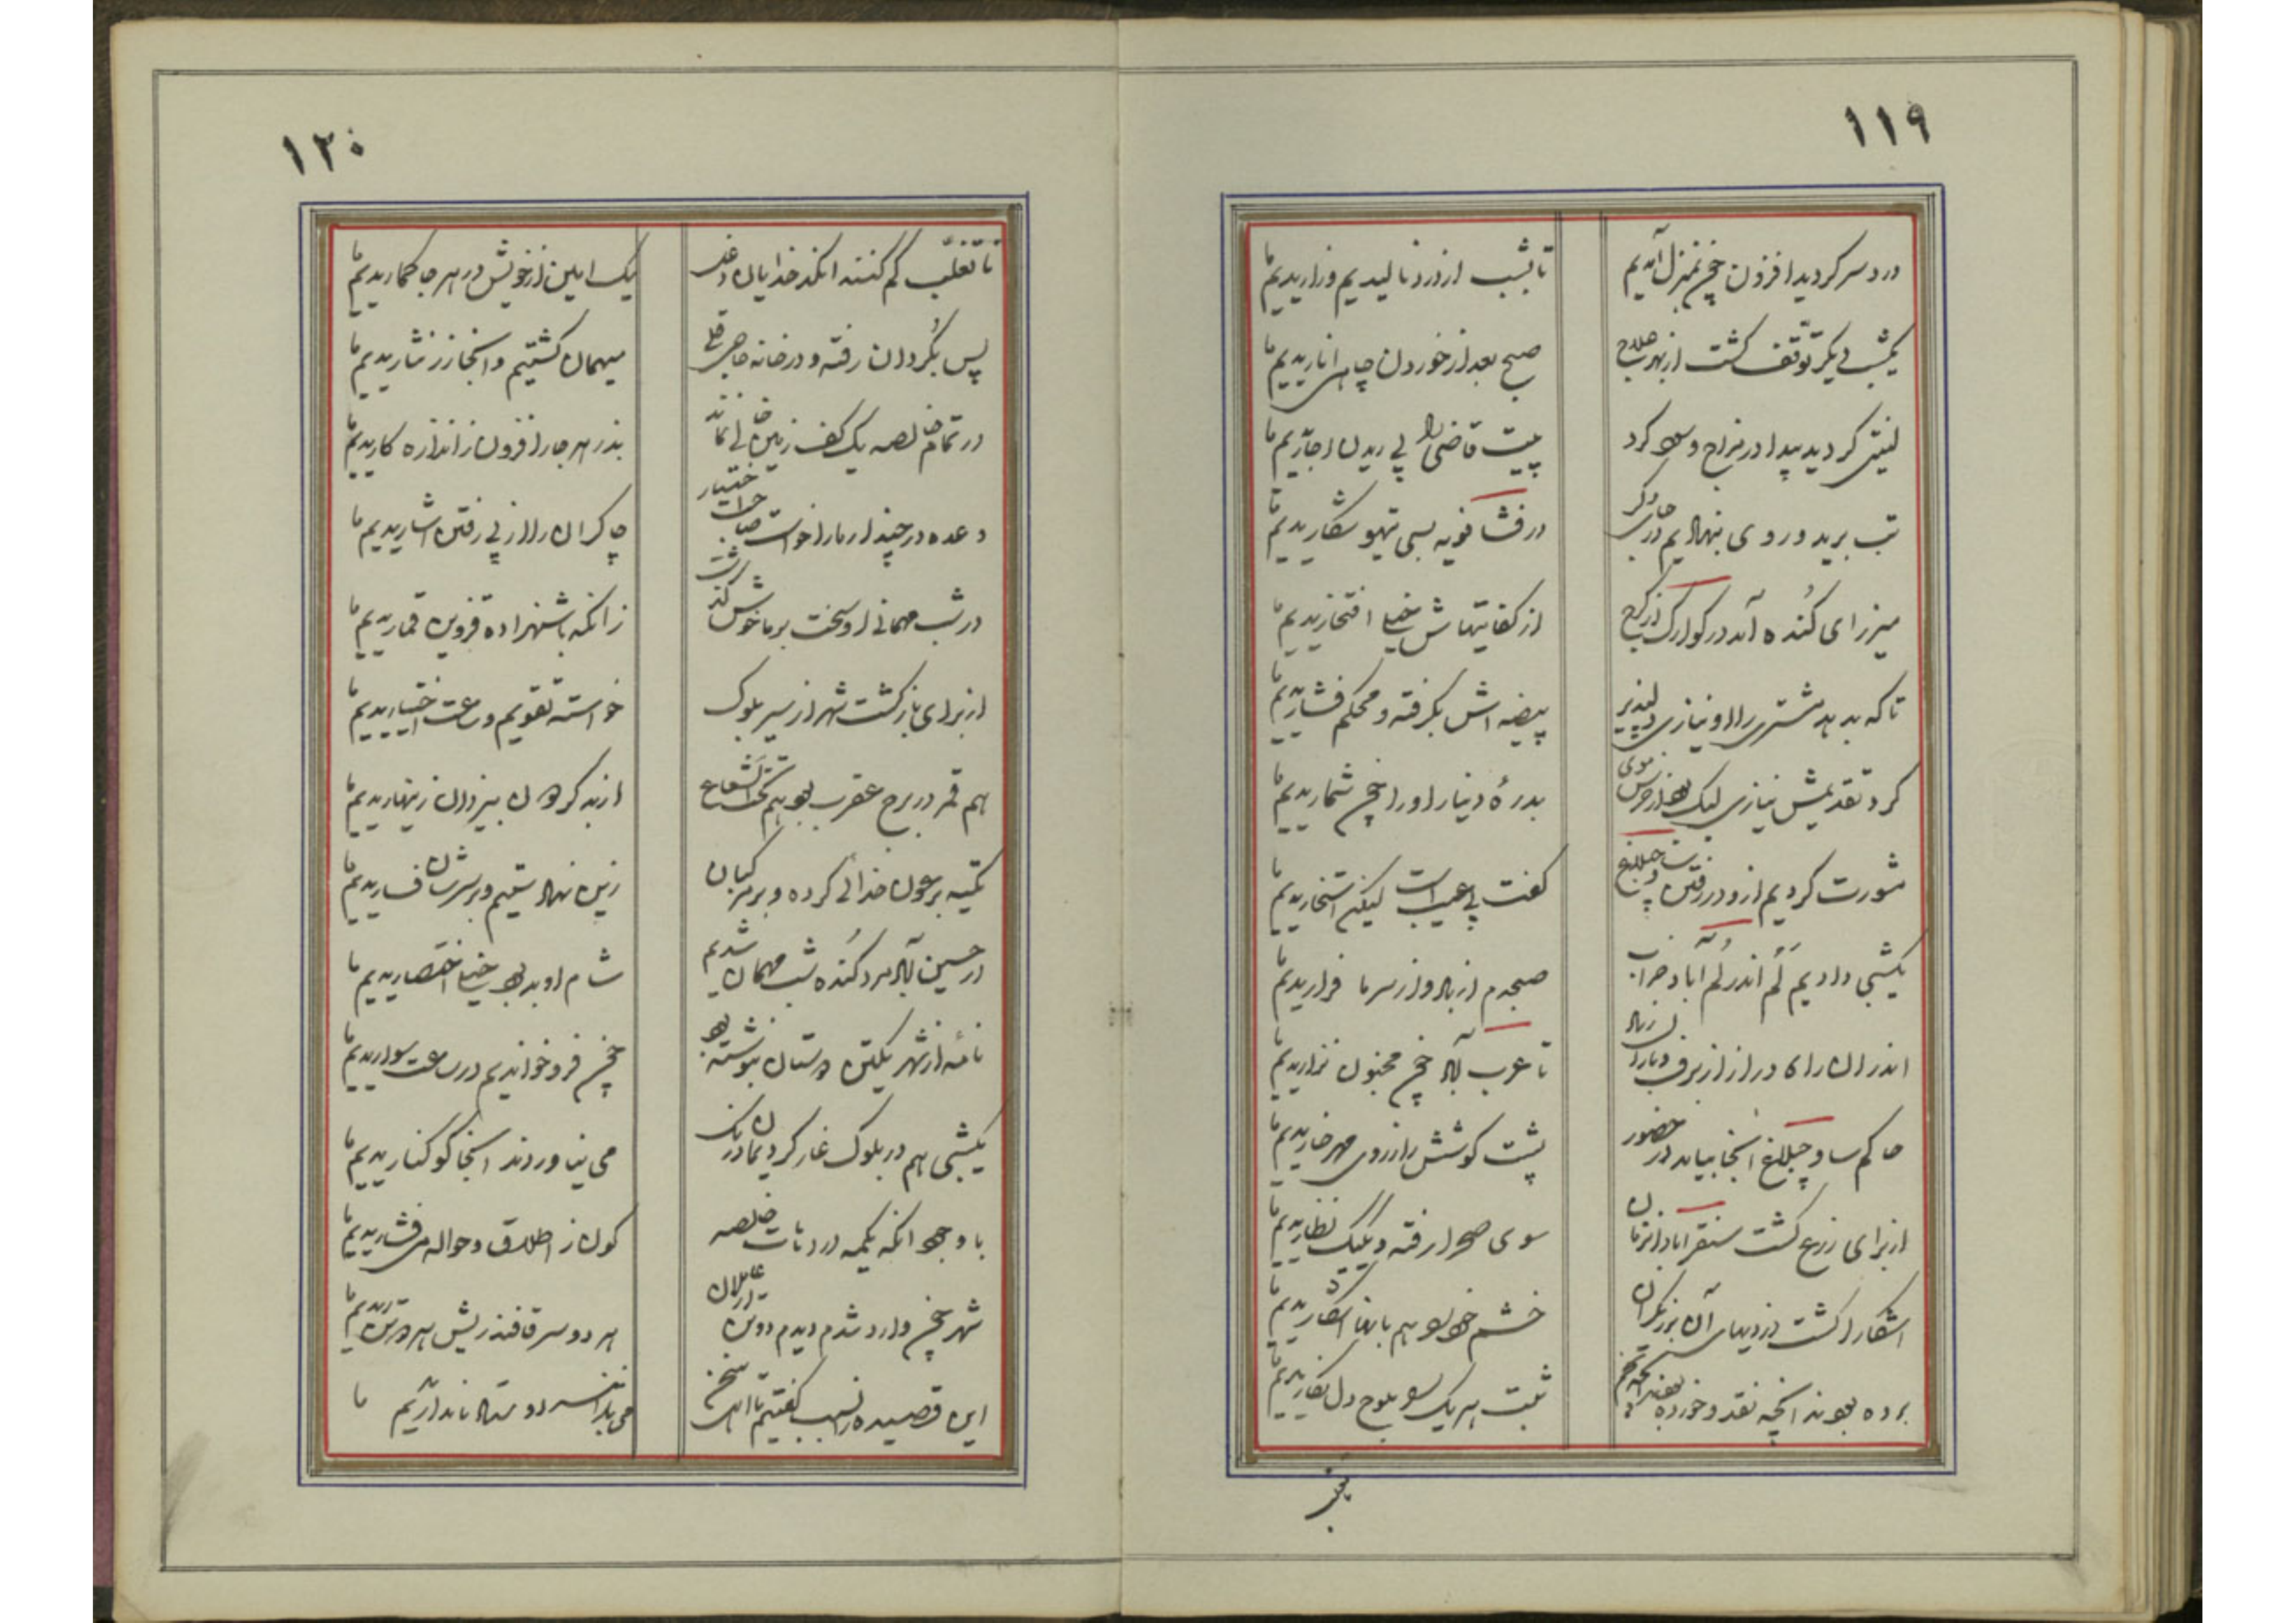 ۱۱۹
درد سر گردید افزون چخ بمنزل آمدیم
تا بشب از درد نالیدیم و زاریدیم ما
یکشب دیگر توقف گشت از بهر علاج
صبح بعد از خوردن چاهی اناریدیم ما
لینتی گردید پیدا در مزاج و سود کرد
بیت قاضی را پی ریدن اجاریدیم ما
تب برید و روی بنهادیم در
در فشافویه بسی تیهو شکاریدیم ما
میرزای گنده آمد در کوارک از کرج
از کفایتهاش خیلی افتخاریدیم ما
تا که بدهد مشتری را او نیازی دلپذیر
بیضه اش بگرفته و محکم فشاریدیم ما
کرد تقدیمش نیازی لیک بود از خرس موی
بدرهٔ دینار او را چخ شماریدیم ما
مشورت کردیم ازو در رفتن
گفت بی عیب است لیکن استخاریدیم ما
یکشبی دادیم لم اندر لم آباد خراب
صبحدم از باد و از سرما فراریدیم ما
اندران راه دراز از برف و باران
تا عرب آباد چخ مجنون نزاریدیم ما
حاکم ساوجبلاغ آنجا بیامد در حضور
پشت گوشش را ز روی مهر خاریدیم ما
از برای زرع کشت سنقرآباد
سوی صحرا رفته و یک یک نظاریدیم ما
آشکارا گشت دزدیهای آن برزیگران
خشم خود بود هم بانها آشکاریدیم ما
برده بودند آنچه نقد و خورده بودند آنچه تخم
ثبت هر یک بلوح دل نگاریدیم ما
۱۲۰
تا تقلب کم کنند آن کدخدایان دغل
یک امین از خویش در هر جا گماریدیم ما
پس بگردان رفته و در خانه حاجی قلی
میهمان گشتیم و آنجا زر نثاریدیم ما
در تمام خالصه یک کف زمین خالی نماند
بذر هر جا را فزون ز اندازه کاریدیم ما
وعده در چیندار ما را خواست صاحب اختیار
چاکران را از پی رفتن اشاریدیم ما
در شب مهمانی او سخت بر ما خوش گذشت
زانکه با شهزاده قزوین قماریدیم ما
از برای بازگشت شهر از سیر بلوک
خواسته تقویم و ساعت اختیاریدیم ما
هم قمر در برج عقرب بود هم تحت الشعاع
از بد گردون بیزدان زینهاریدیم ما
تکیه بر عون خدائی کرده و بر مرکبان
زین نهادستیم و بر سرشان فساریدیم ما
در حسین آباد مرد گنده شب مهمان شدیم
شام او بد بود خیلی اختصاریدیم ما
نامهٔ از شهر یکتن دوستان بنوشته بود
چخ فرو خواندیم در ساعت سواریدیم ما
یکشبی هم در بلوک غار کردیمان درنگ
می نیاوردند آنجا کو کناریدیم ما
با وجود آنکه یکمه در دهات خالصه
کون ز اطلاق و حواله می فشاریدیم ما
شهر چخ وارد شدم دیدم دو تن
هر دو سر قافند ریش هر دو تن ریدیم ما
این قصیده زانسبب گفتیم تا اهل سخن